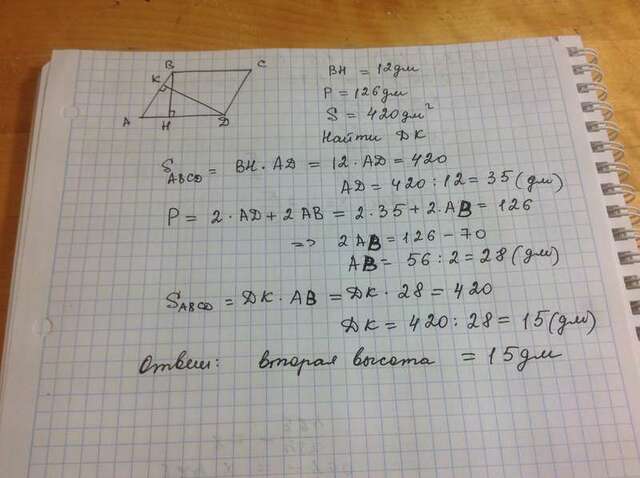 B C
K
A H D
BH = 12дм
P = 126дм
S = 420дм²
Найти DK
S_ABCD = BH · AD = 12 · AD = 420
AD = 420 : 12 = 35 (дм)
P = 2 · AD + 2 AB = 2 · 35 + 2 · AB = 126
=> 2 AB = 126 - 70
AB = 56 : 2 = 28 (дм)
S_ABCD = DK · AB = DK · 28 = 420
DK = 420 : 28 = 15 (дм)
Ответ: вторая высота = 15 дм